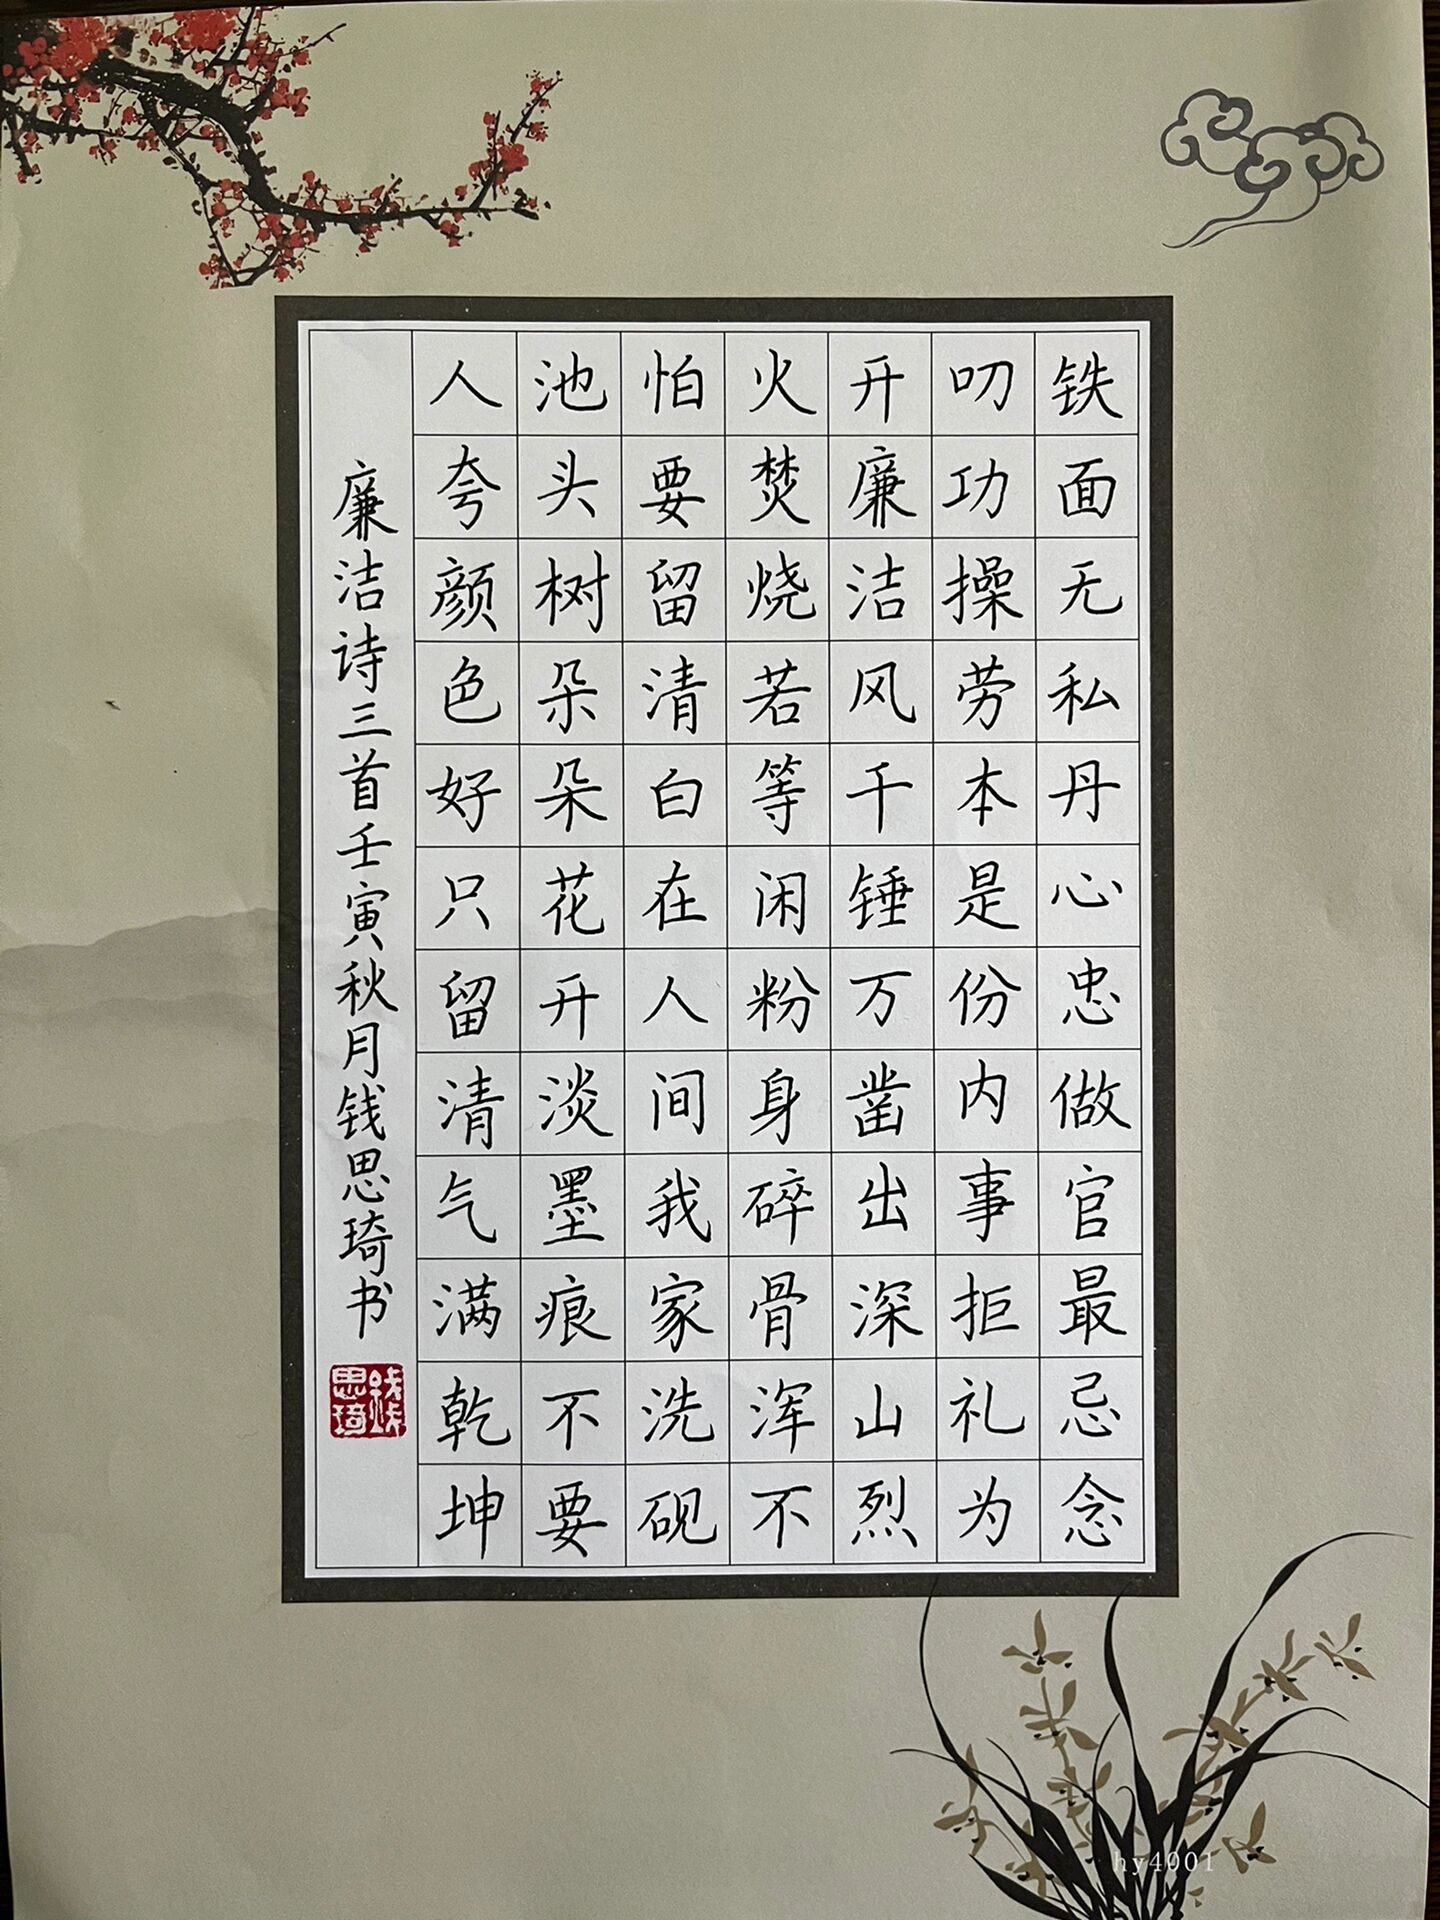 铁面无私丹心忠做官最忌念
叨功操劳本是份内事拒礼为
开廉洁风千锤万凿出深山烈
火焚烧若等闲粉身碎骨浑不
怕要留清白在人间我家洗砚
池头树朵朵花开淡墨痕不要
人夸颜色好只留清气满乾坤
廉洁诗三首壬寅秋月钱思琦书
钱思琦
hy4001